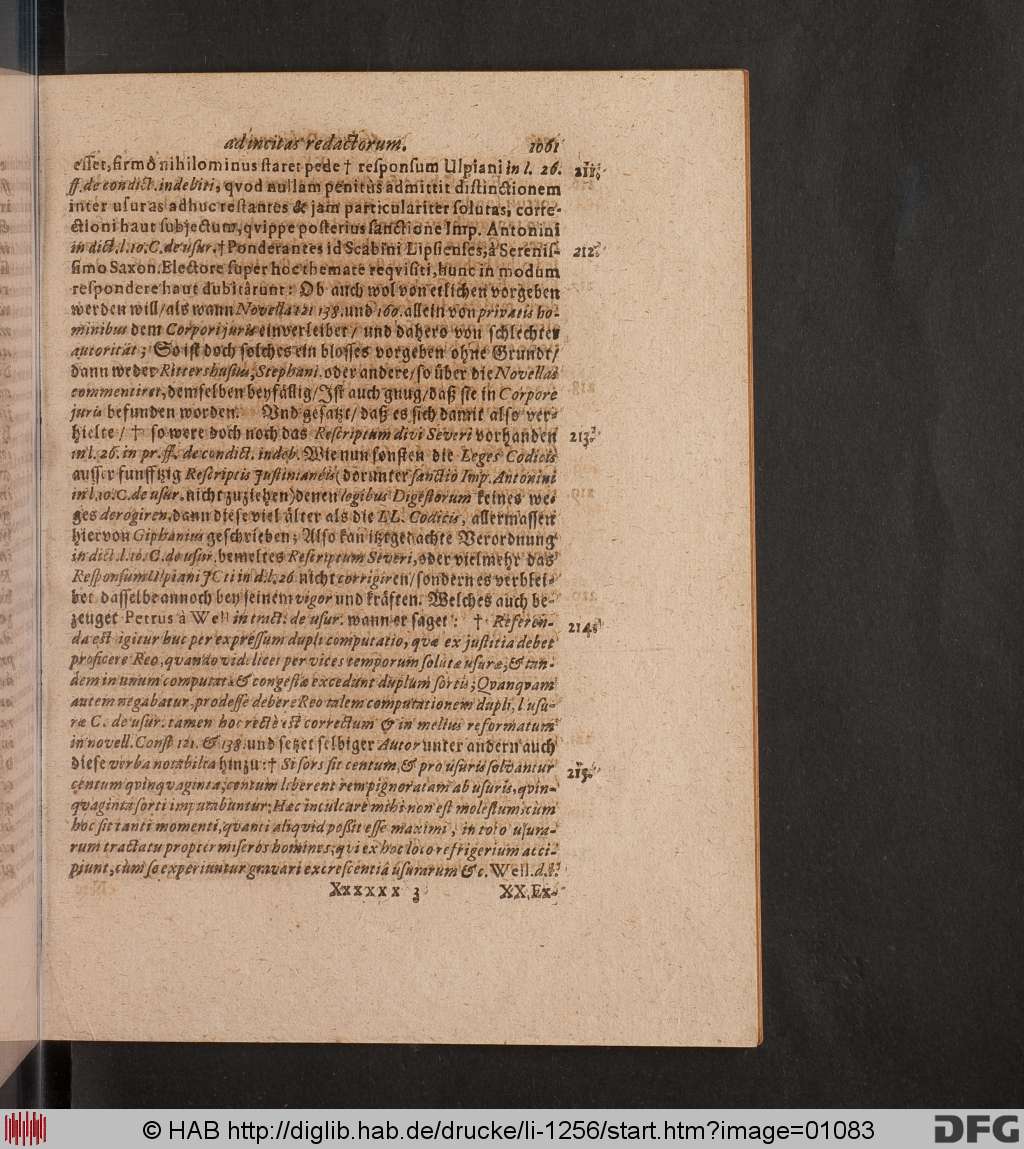 ad incitas redactorum. 1061
esset, firmô nihilominus staret pede † responsum Ulpiani in l. 26. 211.
ff. de condict. indebiti, qvod nullam penitùs admittit distinctionem
inter usuras adhuc restantes & jam particulariter solutas, corre-
ctioni haut subjectum, qvippe posterius sanctione Imp. Antonini
in dict. l. 10. C. de usur. † Ponderantes id Scabini Lipsienses, à Serenis- 212.
simo Saxon. Electore super hoc themate reqvisiti, hunc in modum
respondere haut dubitârunt: Ob auch wol von etlichen vorgeben
werden will / als wann Novella 121 138. und 160. allein von privatis ho-
minibus dem Corpori juris einverleibet / und dahero von schlechter
autorität; So ist doch solches ein blosses vorgeben ohne Grundt /
dann weder Rittershusius, Stephani. oder andere / so über die Novellas
commentiret, demselben beyfällig / Ist auch gnug / daß sie in Corpore
juris befunden worden. Und gesatzt / daß es sich damit also ver-
hielte / † so were doch noch das Rescriptum divi Severi vorhanden 213.
in l. 26. in pr. ff. de condict. indeb. Wie nun sonsten die Leges Codicis
ausser funfftzig Rescriptis Justinianeis (darunter sanctio Imp. Antonini
in l. 10. C. de usur. nicht zuziehen) denen legibus Digestorum keines we-
ges derogiren, dann diese viel älter als die LL. Codicis, allermassen
hiervon Giphanius geschrieben; Also kan itztgedachte Verordnung
in dict. l. 10. C. de usur. bemeltes Rescriptum Severi, oder vielmehr das
Responsum Ulpiani JCti in d. l. 26 nicht corrigiren / sondern es verblei-
bet dasselbe annoch bey seinem vigor und kräften. Welches auch be-
zeuget Petrus à Well in tract. de usur. wann er saget: † Referen- 214.
da est igitur huc per expressum dupli computatio, quæ ex justitia debet
proficere Reo, quando videlicet per vices temporum solutæ usuræ; & tan-
dem in unum computatæ & congestæ excedunt duplum sortis; Quanquam
autem negabatur, prodesse debere Reo talem computationem dupli, l usu-
ræ C. de usur. tamen hoc rectè est correctum & in melius reformatum
in novell. Const 121. & 138. und setzet selbiger Autor unter andern auch
diese verba notabilia hinzu: † Si sors sit centum, & pro usuris solvantur 215.
centum qvinqvaginta; centum liberent rem pignoratam ab usuris, qvin-
qvaginta sorti imputabuntur; Hæc inculcare mihi non est molestum; cum
hoc sit tanti momenti, qvanti aliqvid poßit esse maximi, in toto usura-
rum tractatu propter miseros homines; qvi ex hoc loco refrigerium acci-
piunt, cùm se experiuntur gravari excrescentiâ usurarum &c. Well. d. l.
Xxxxxx 3 XX. Ex-
© HAB http://diglib.hab.de/drucke/li-1256/start.htm?image=01083
DFG